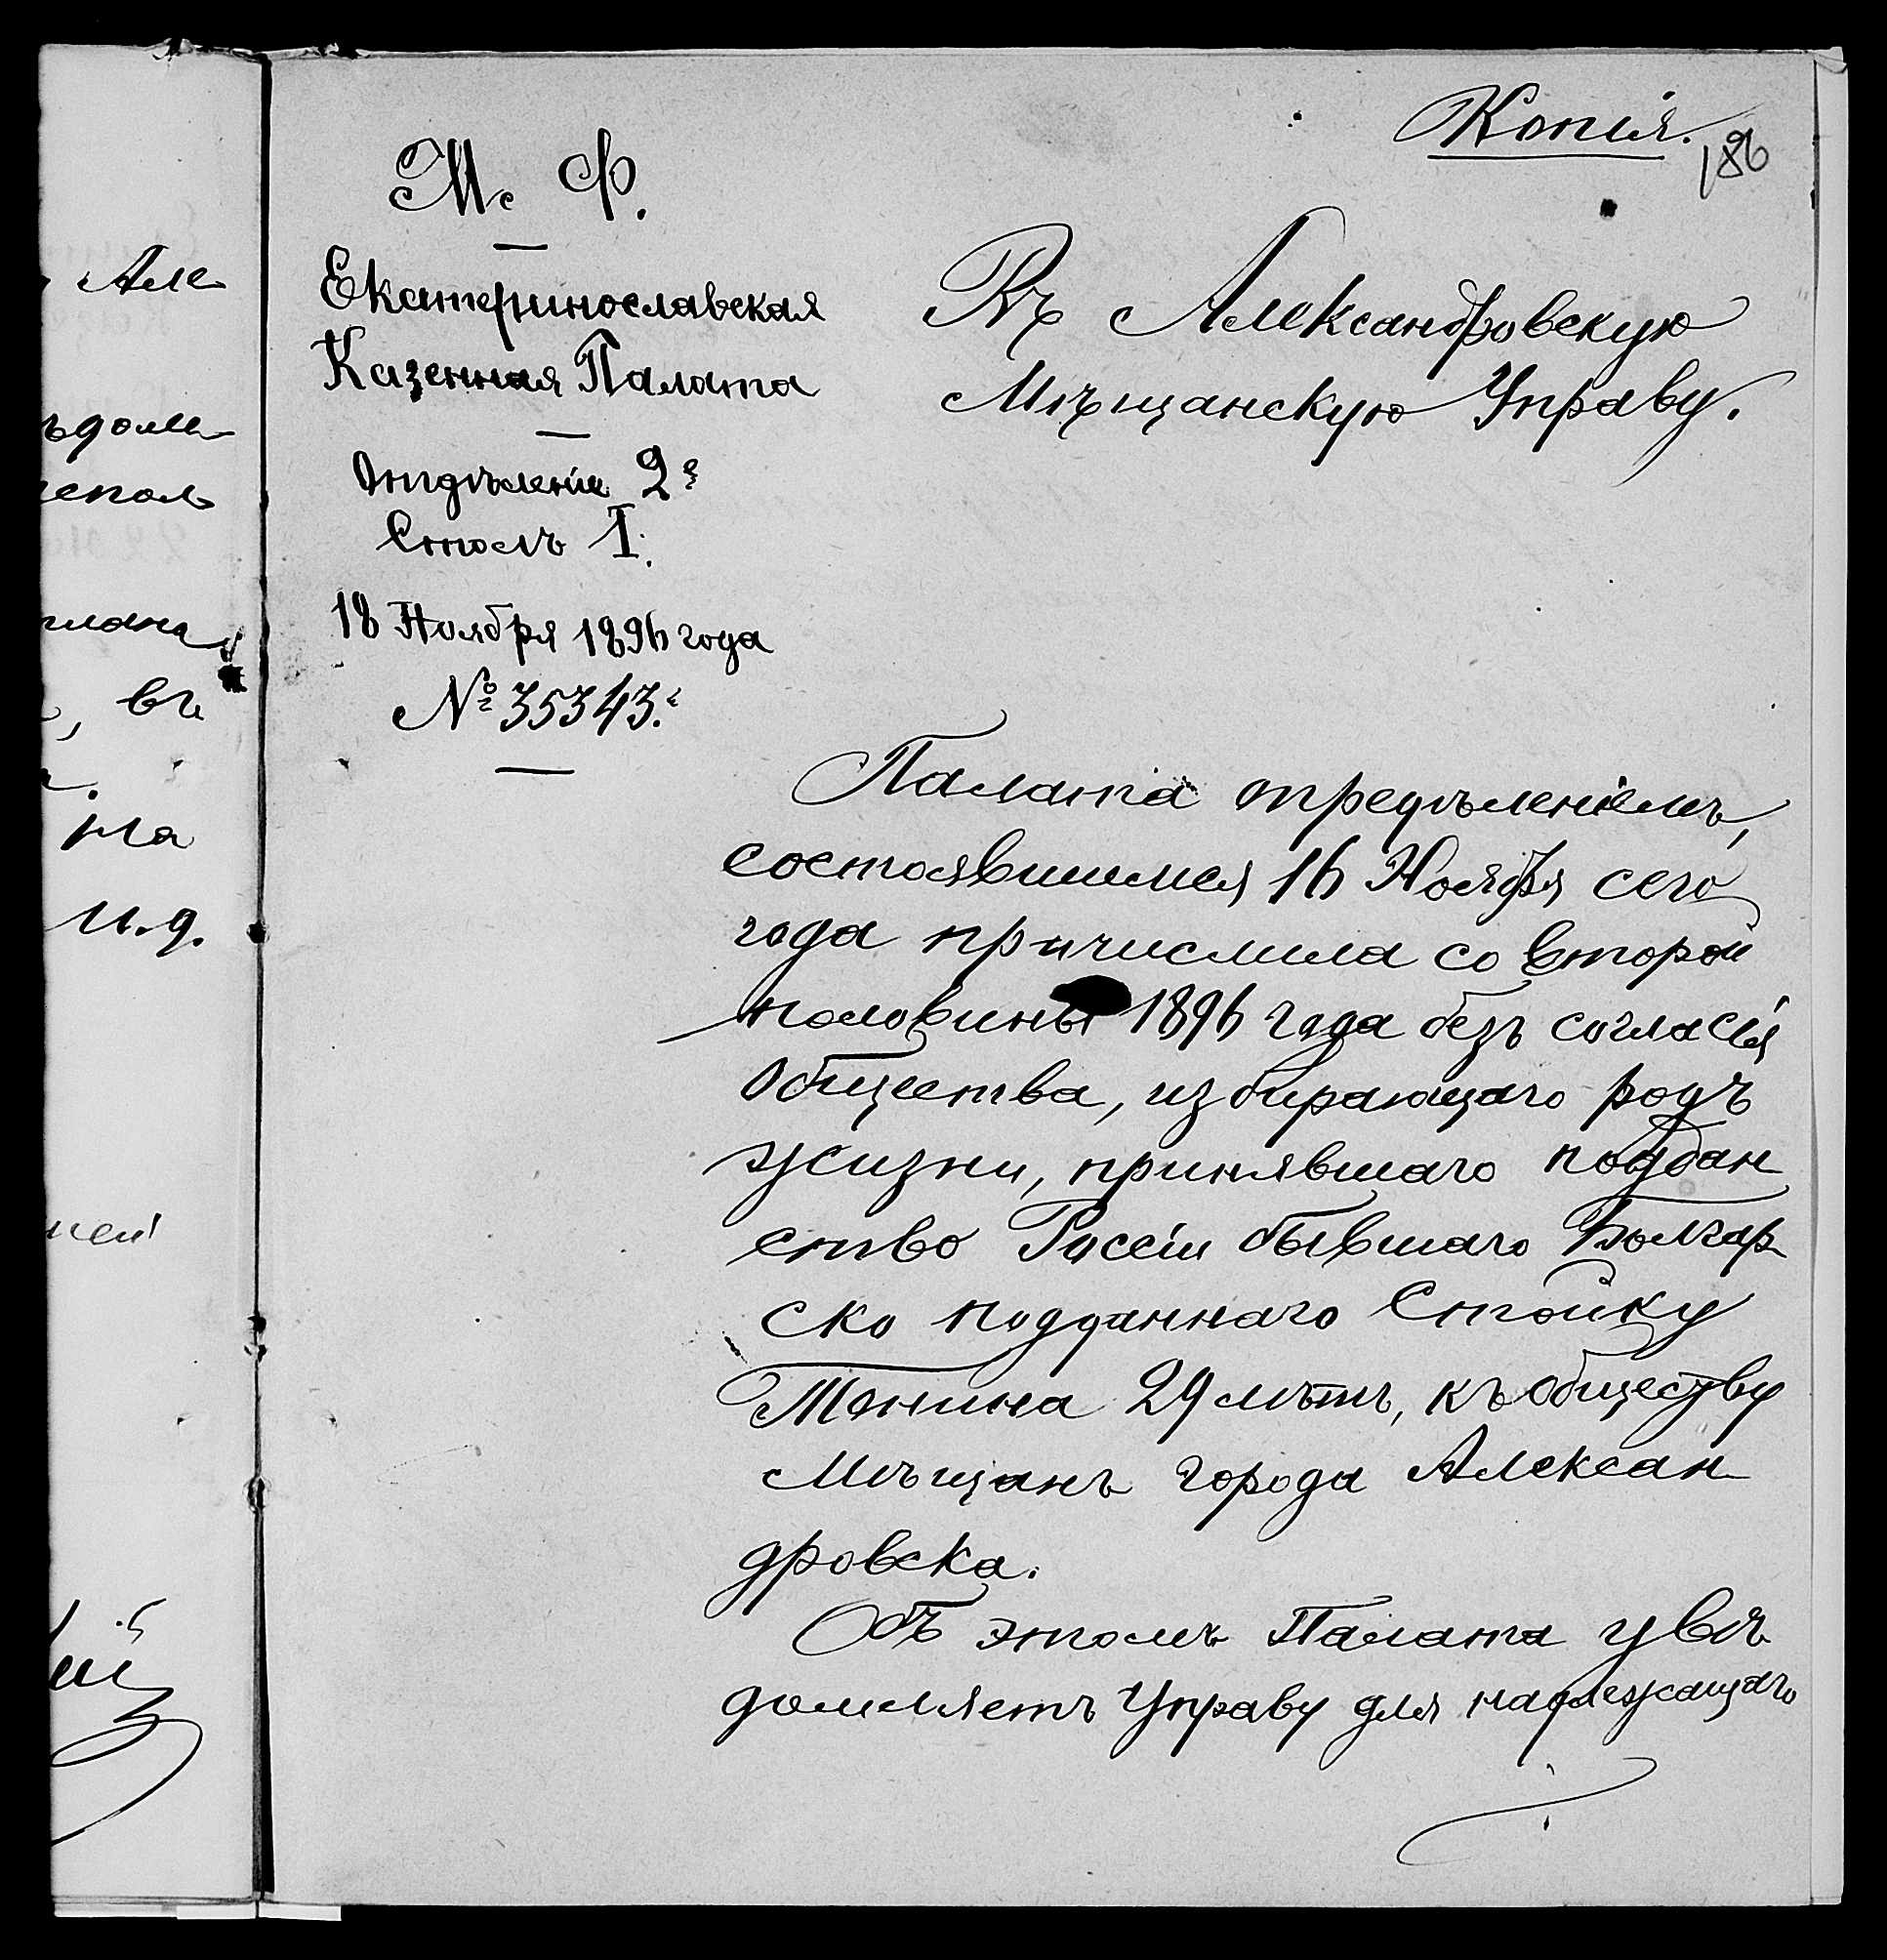 Але
ъдом
испол
, въ
на
и.д.
Копія.
186
М. Ф.
Екатеринославская
Казенная Палата
Отдѣленіе 2е
Столъ I.
18 Ноября 1896 года
№ 35343.
Въ Александровскую
Мѣщанскую Управу.
Палата опредѣленіемъ,
состоявшимся 16 Ноября сего
года причислила со второй
половины 1896 года безъ согласія
Общества, избирающаго родъ
жизни, принявшаго поддан
ство Россіи бывшаго Болгар
ско подданнаго Стойку
Тенина 29 лѣтъ, къ обществу
Мѣщанъ города Алексан
дровска.
Объ этомъ Палата увѣ
домляетъ Управу для надлежащаго